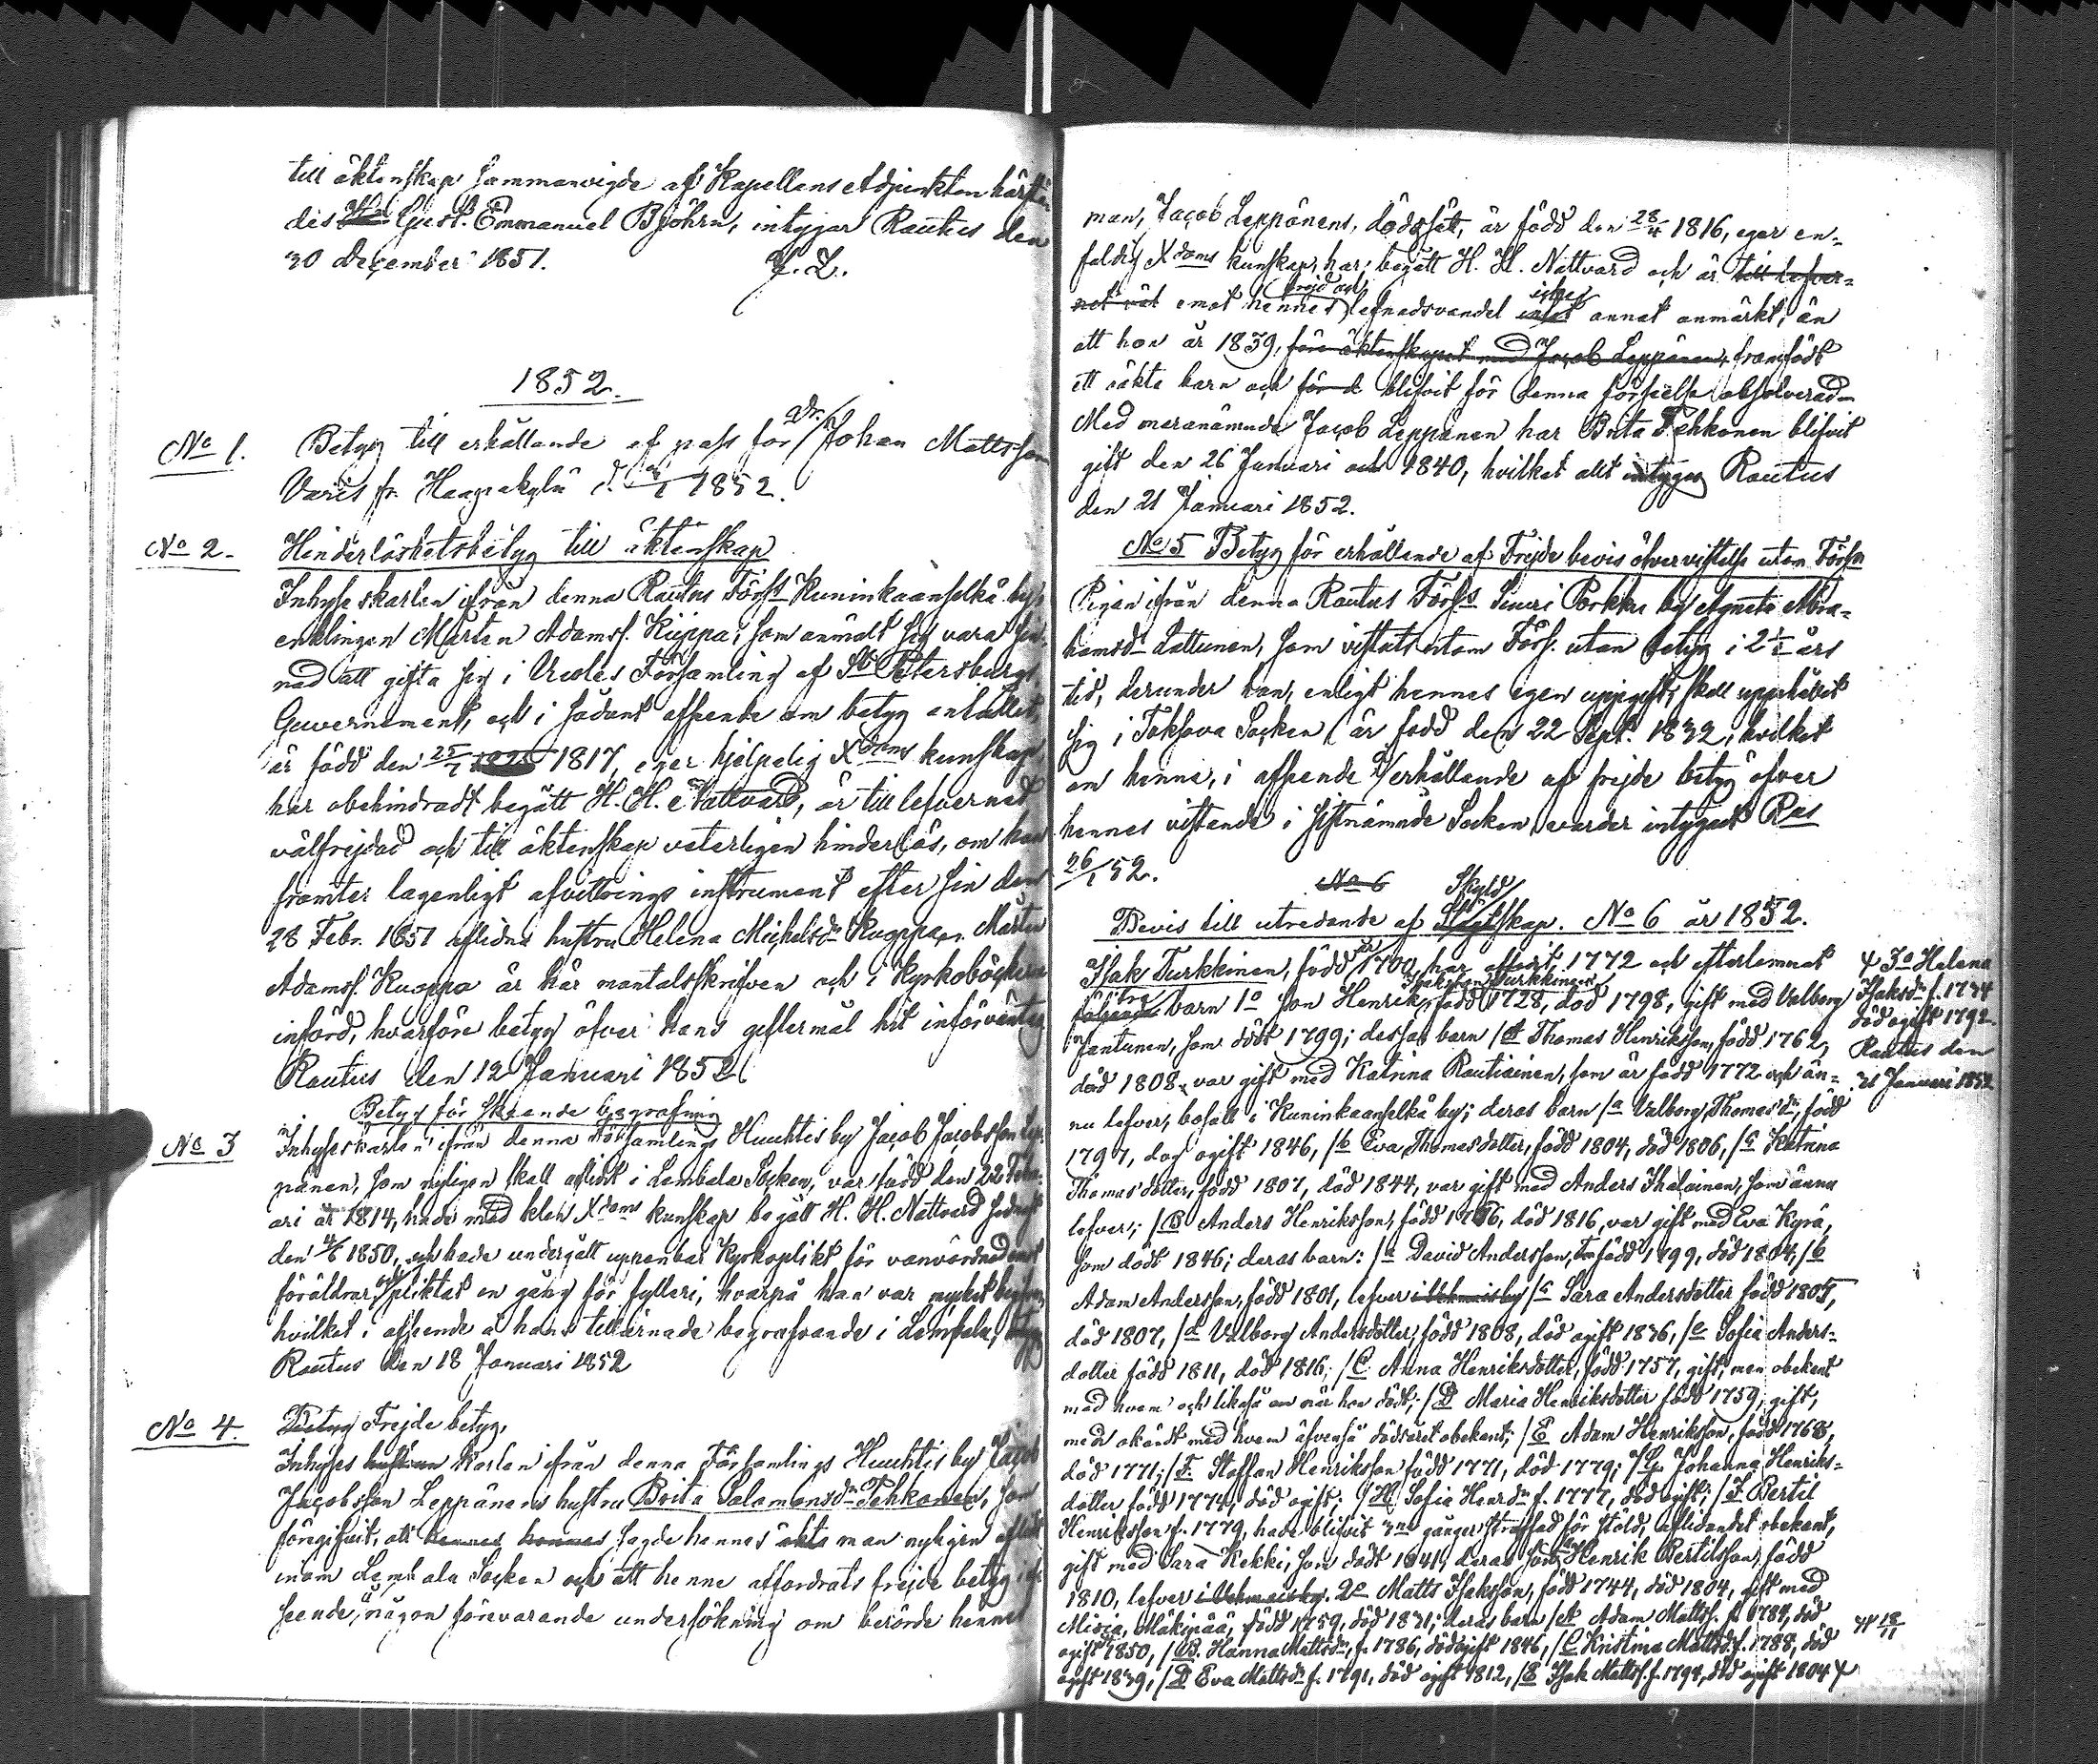 till äktenskap sammanvigde af Kapellans Adjunkten härstä-
des Gust. Emmanuel Björhn, intygar Rautus den
30 december 1851. J. L.
1852.
No 1. Betyg till erhållande af pass för Dr. Johan Mattsson
Varis fr. Haapakylä d. 1852.
No 2. Hinderlöshetsbetyg till äktenskap
Inhyses karlen ifrån denna Rautus Förs. Kuninkaanselkä by,
enklingen Mårten Adamss. Kuppa, som anmält sig vara sin-
nad att gifta sig i Församling af St Petersburgs
Guvernement, och i sådant afseende om betyg anhållet,
är född den 25/7 1817, eger hjelpelig Xdoms kunskap,
har obehindradt begått H. H. Nattvard, är till lefvernet
välfrejdad och till äktenskap veterligen hinderlös, om han
framter lagenligt afvittrings instrument efter sin den
28 Febr. 1851 aflidna hustru Helena Michelsdr Kuoppa. Mårten
Adamss. Kuoppa är här mantalsskrifven och i Kyrkoböckerna
införd, hvarföre betyg öfver hans giftermål hit införväntas
Rautus den 12 Januari 1852
Betyg för skeende begrafning
No 3 Inhyseskarlen ifrån denna Församlings Huuhtis by Jacob Jacobsson Lep-
pänen, som nyligen skall aflidit i Lembala Socken, var född den 22 Febru-
ari år 1814, hade med klen Xdoms kunskap begått H. H. Nattvard sednast
den 4/6 1850, och hade undergått uppenbar Kyrkoplikt för vanvördnad emot
föräldrar, och pliktat en gång för fylleri, hvarpå han var mycket begifven,
hvilket i afseende å hans tillärnade begrafvande i Lembala, intygas
Rautus den 18 Januari 1852
No 4. Betyg Frejde betyg.
Inhyses hustrun Karlen ifrån denna Församlings Huuhtis by Jacob
Jacobsson Leppänens hustru Brita Salomonsdr Tehkonen, som
föregifvit, att hennes hennes sagde hennes äkta man nyligen aflidit
inom Lembala Socken och att henne affordrats frejde betyg i af-
seende å någon förevarande undersökning om berörde hennes
man, Jacob Leppänens, dödssätt, är född den 28/4 1816, eger en-
faldig Xdoms kunskap, har begått H. H. Nattvard och är till lefver-
net väl emot hennes frejd och lefnadsvandel intet icke annat anmärkt, än
att hon år 1839, före äktenskapet med Jacob Leppänen, framfödt
ett oäkta barn och för d blifvit för denna förseelse absolverad.
Med meranämnde Jacob Leppänen har Brita Tehkonen blifvit
gift den 26 Januari och 1840, hvilket allt intygas Rautus
den 21 Januari 1852.
No 5 Betyg för erhållande af Frejde bevis öfver vistelse utom Försn
Pigan ifrån denna Rautus Förs. Suuri Porkku by Agneta Abra-
hamsdr Lattunen, som vistats utom Förs. utan betyg i 2 1/2 års
tid, derunder hon, enligt hennes egen uppgift, skall uppehållit
sig i Toksova Socken är född den 22 Sept. 1832, hvilket
om henne, i afseende å erhållande af frejde betyg öfver
hennes vistande i sistnämnde Socken, varder intygadt Ras
26/1 52.
No 6
Bevis till utredande af Slägtskap. Skyld No 6 år 1852.
Isak Turkkinen, född år 1700, har aflidit 1772 och efterlemnat
följande tre barn 1o son Henrik Isaksson Turkkinen, född 1728, död 1798, gift med Valborg
Jantunen, som dödt 1799; dessas barn /A Thomas Henriksson, född 1762,
död 1808, var gift med Katrina Rautiainen, som är född 1772 och än-
nu lefver, bosatt i Kuninkaanselkä by; deras barn /a Valborg Thomasdr, född
1797, dog ogift 1846, /b Eva Thomasdotter, född 1804, död 1806, /c Katrina
Thomasdotter, född 1807, död 1844, var gift med Anders Ihalainen, som ännu
lefver; /B Anders Henriksson, född 1766, död 1816, var gift med Eva Kyrä,
som dödt 1846; deras barn: /a David Andersson, född 1799, död 1804, /b
Adam Andersson, född 1801, lefver i Vehmais by /c Sara Andersdotter född 1805,
död 1807, /d Valborg Andersdotter, född 1808, död ogift 1836, /e Sofia Anders-
dotter född 1811, död 1816; /C Anna Henriksdotter, född 1757, gift, men obekant
med hvem och likaså om när hon dödt; /D Maria Henriksdotter född 1759, gift,
men okändt med hvem äfvenså dödsåret obekant; /E Adam Henriksson, född 1768,
död 1771; /F. Staffan Henriksson född 1771, död 1779; /G Johanna Henriks-
dotter född 1774, död ogift; /H Sofia Henrdr f. 1777, död ogift; /I Bertil
Henriksson f. 1779, hade blifvit 3ne gånger straffad för stöld, aflidandet obekant,
gift med Sara Kekki, som dödt 1841, deras son Henrik Bertilsson, född
1810, lefver i Vehmais by. 2o Matts Isaksson, född 1744, död 1804, gift med
Maria Mäkipää, född 1759, död 1831; deras barn /A Adam Mattss. f. 1784, död
ogift 1850, /B. Hanna Mattsdr, f. 1786, död ogift 1846, /C Kristina Mattsd. f. 1788, död
ogift 1839, /D Eva Mattsdr f. 1791, död ogift 1812, /E Isak Mattss. f. 1794, död ogift 1804
3o Helena
Isaksdr f. 1734
död ogift 1792.
Rautus den
31 Januari 1852